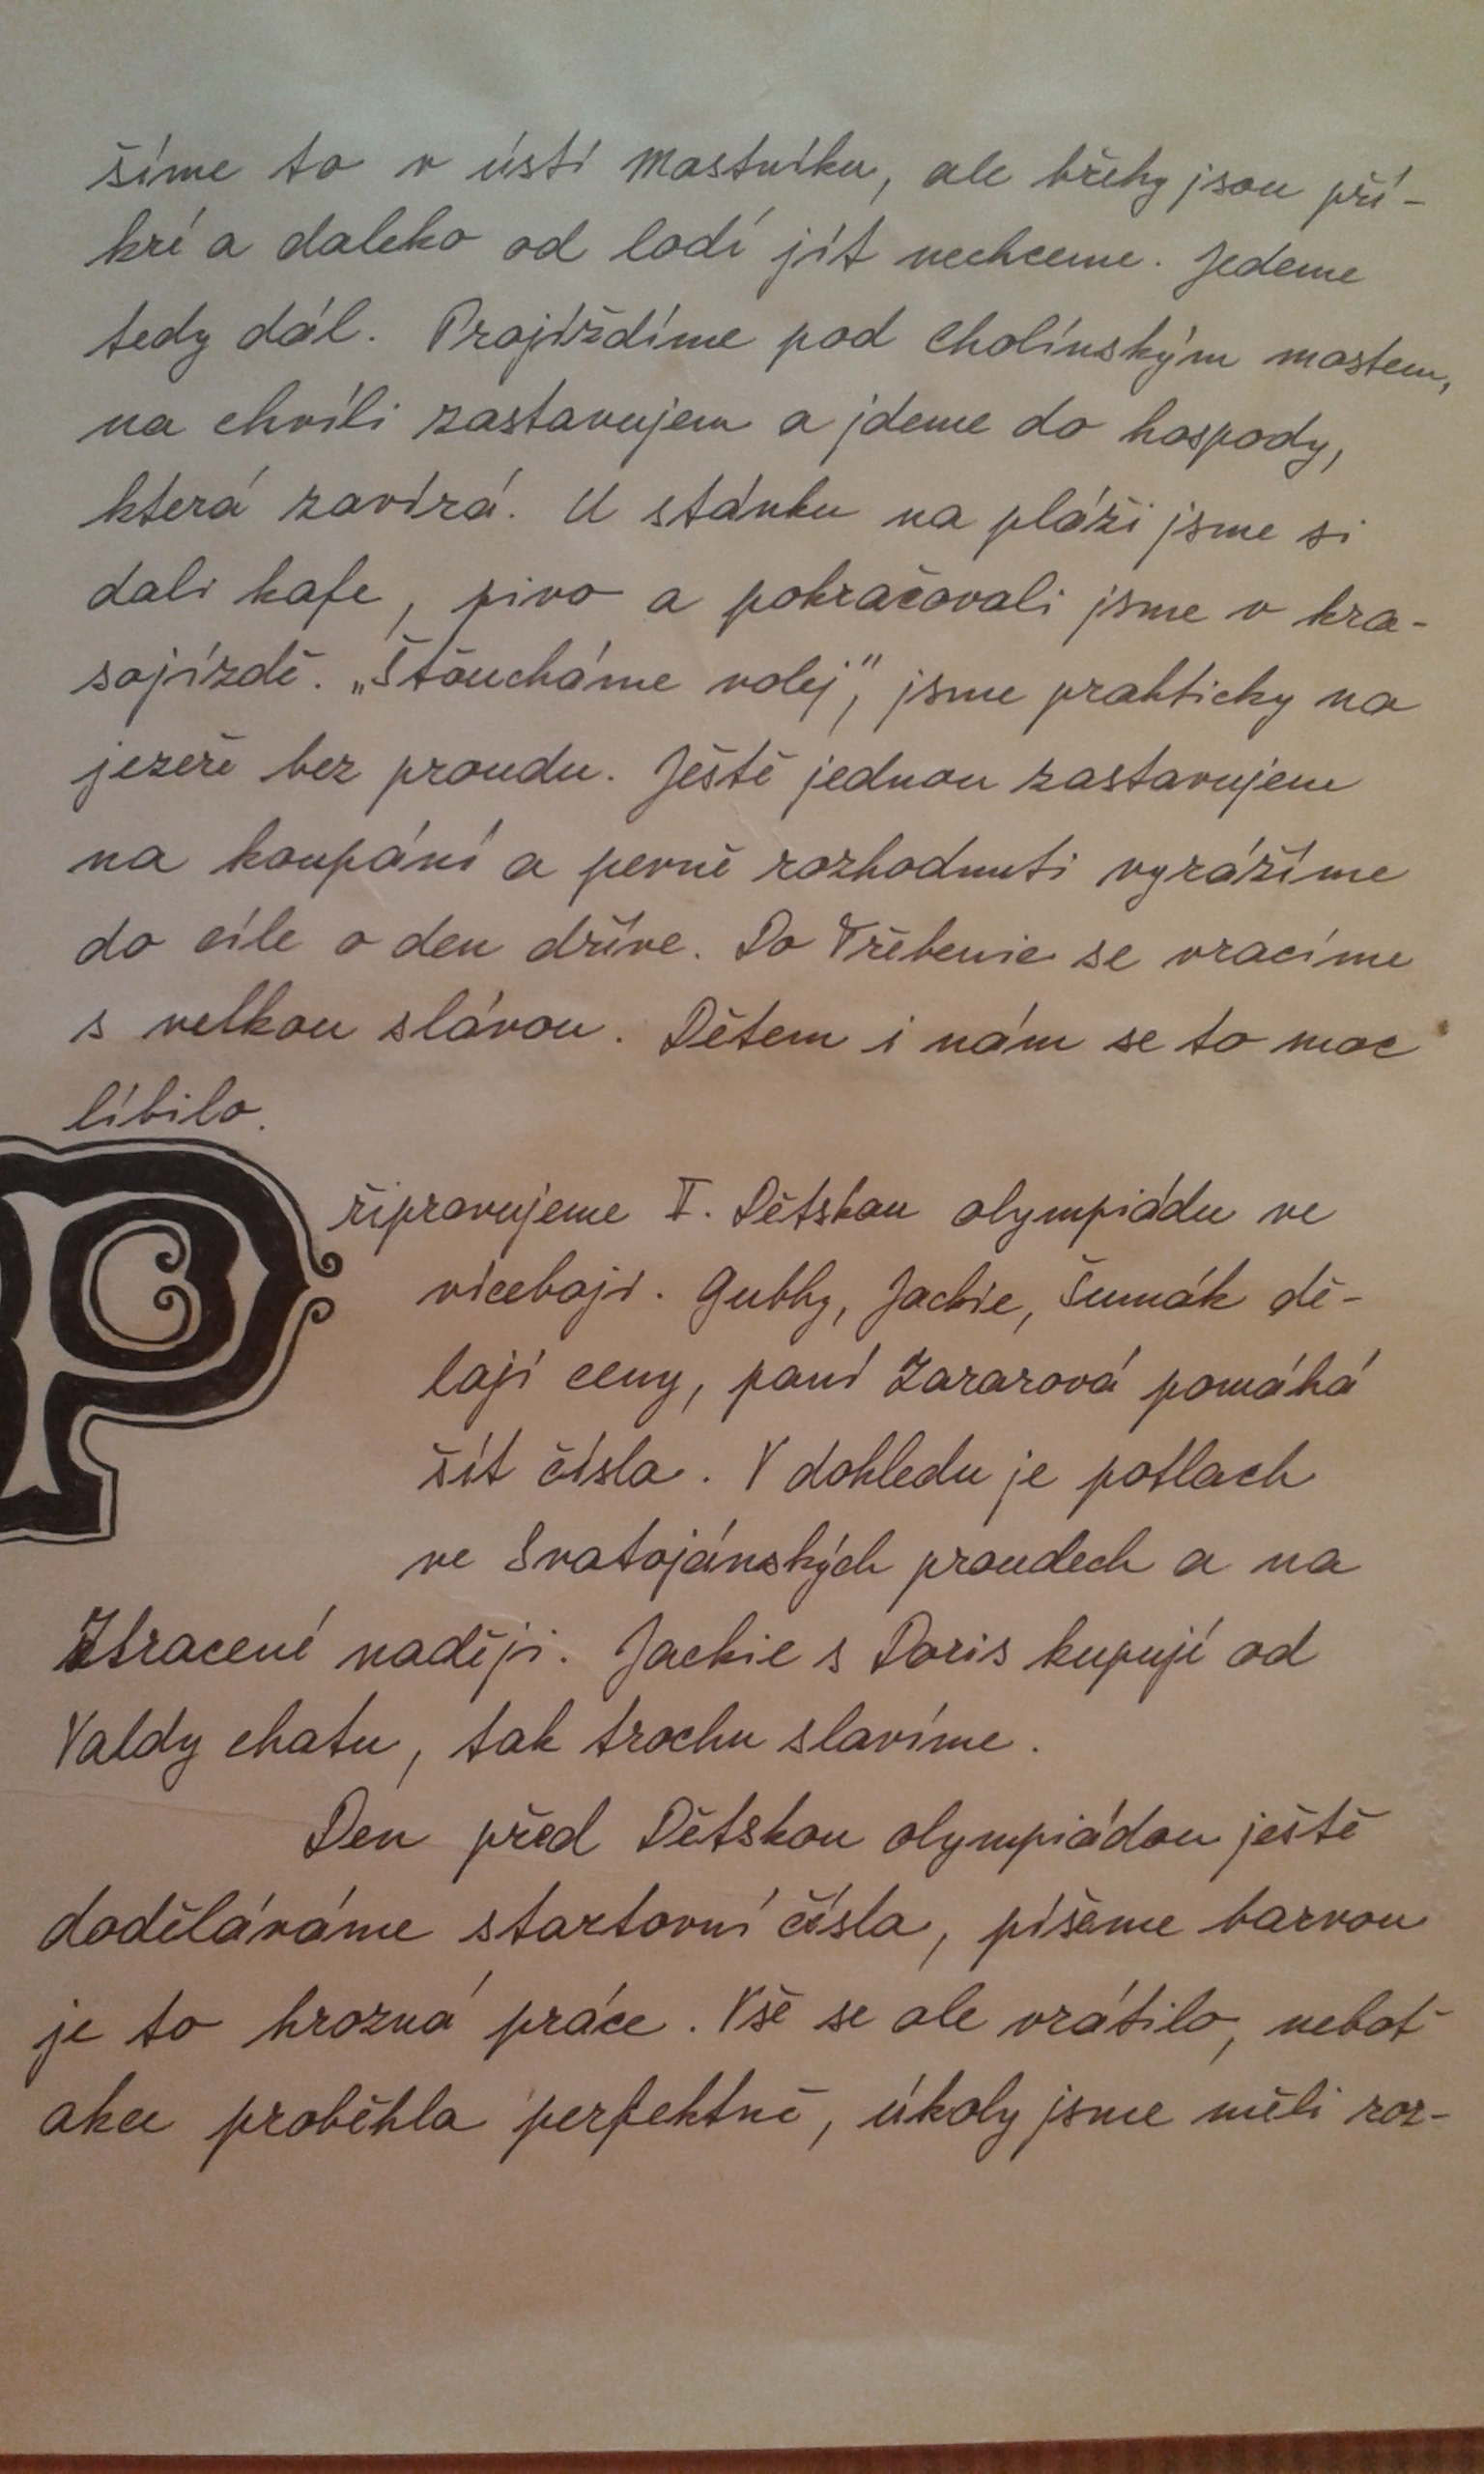 šíme to v ústí Mastníku, ale břehy jsou pří-
krí a daleko od lodí jít nechceme. Jedeme
tedy dál. Projíždíme pod Cholínským mostem,
na chvíli zastavujem a jdeme do hospody,
která zavírá. U stánku na pláži jsme si
dali kafe, pivo a pokračovali jsme v kra-
sojízdě. „Šťoucháme volej", jsme prakticky na
jezeře bez proudu. Ještě jednou zastavujem
na koupání a pevně rozhodnuti vyrážíme
do cíle o den dříve. Do Třebenic se vracíme
s velkou slávou. Dětem i nám se to moc
líbilo.
Připravujeme I. Dětskou olympiádu ve
víceboji. Gubby, Jackie, Šumák dě-
lají ceny, paní Zararová pomáhá
šít čísla. V dohledu je potlach
ve Svatojánských proudech a na
Ztracené naději. Jackie s Doris kupují od
Valdy chatu, tak trochu slavíme.
Den před Dětskou olympiádou ještě
doděláváme startovní čísla, píšeme barvou
je to hrozná práce. Vše se ale vrátilo, neboť
akce proběhla perfektně, úkoly jsme měli roz-